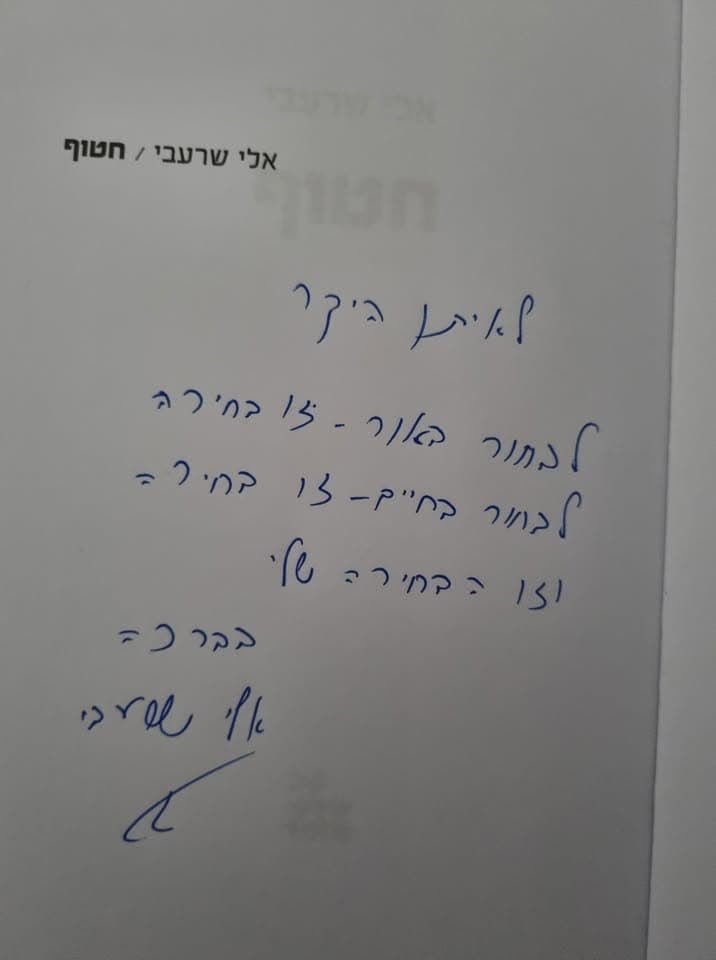 אלי שרעבי
חטוף
אלי שרעבי / חטוף
לאיתן היקר
לבחור באור - זו בחירה
לבחור בחיים - זו בחירה
וזו הבחירה שלי
בברכה
אלי שרעבי